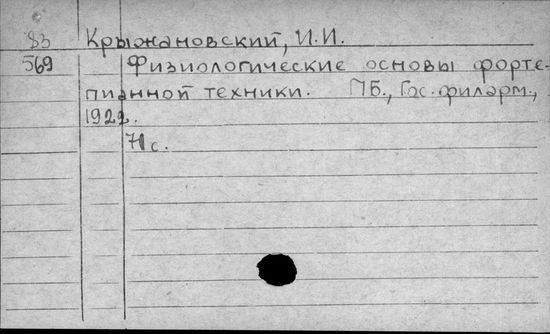 83 Крыжановский, И.И.
569 Физиологические основы форте-
пианной техники. ПБ., Гос. филарм.,
1922.
71 с.